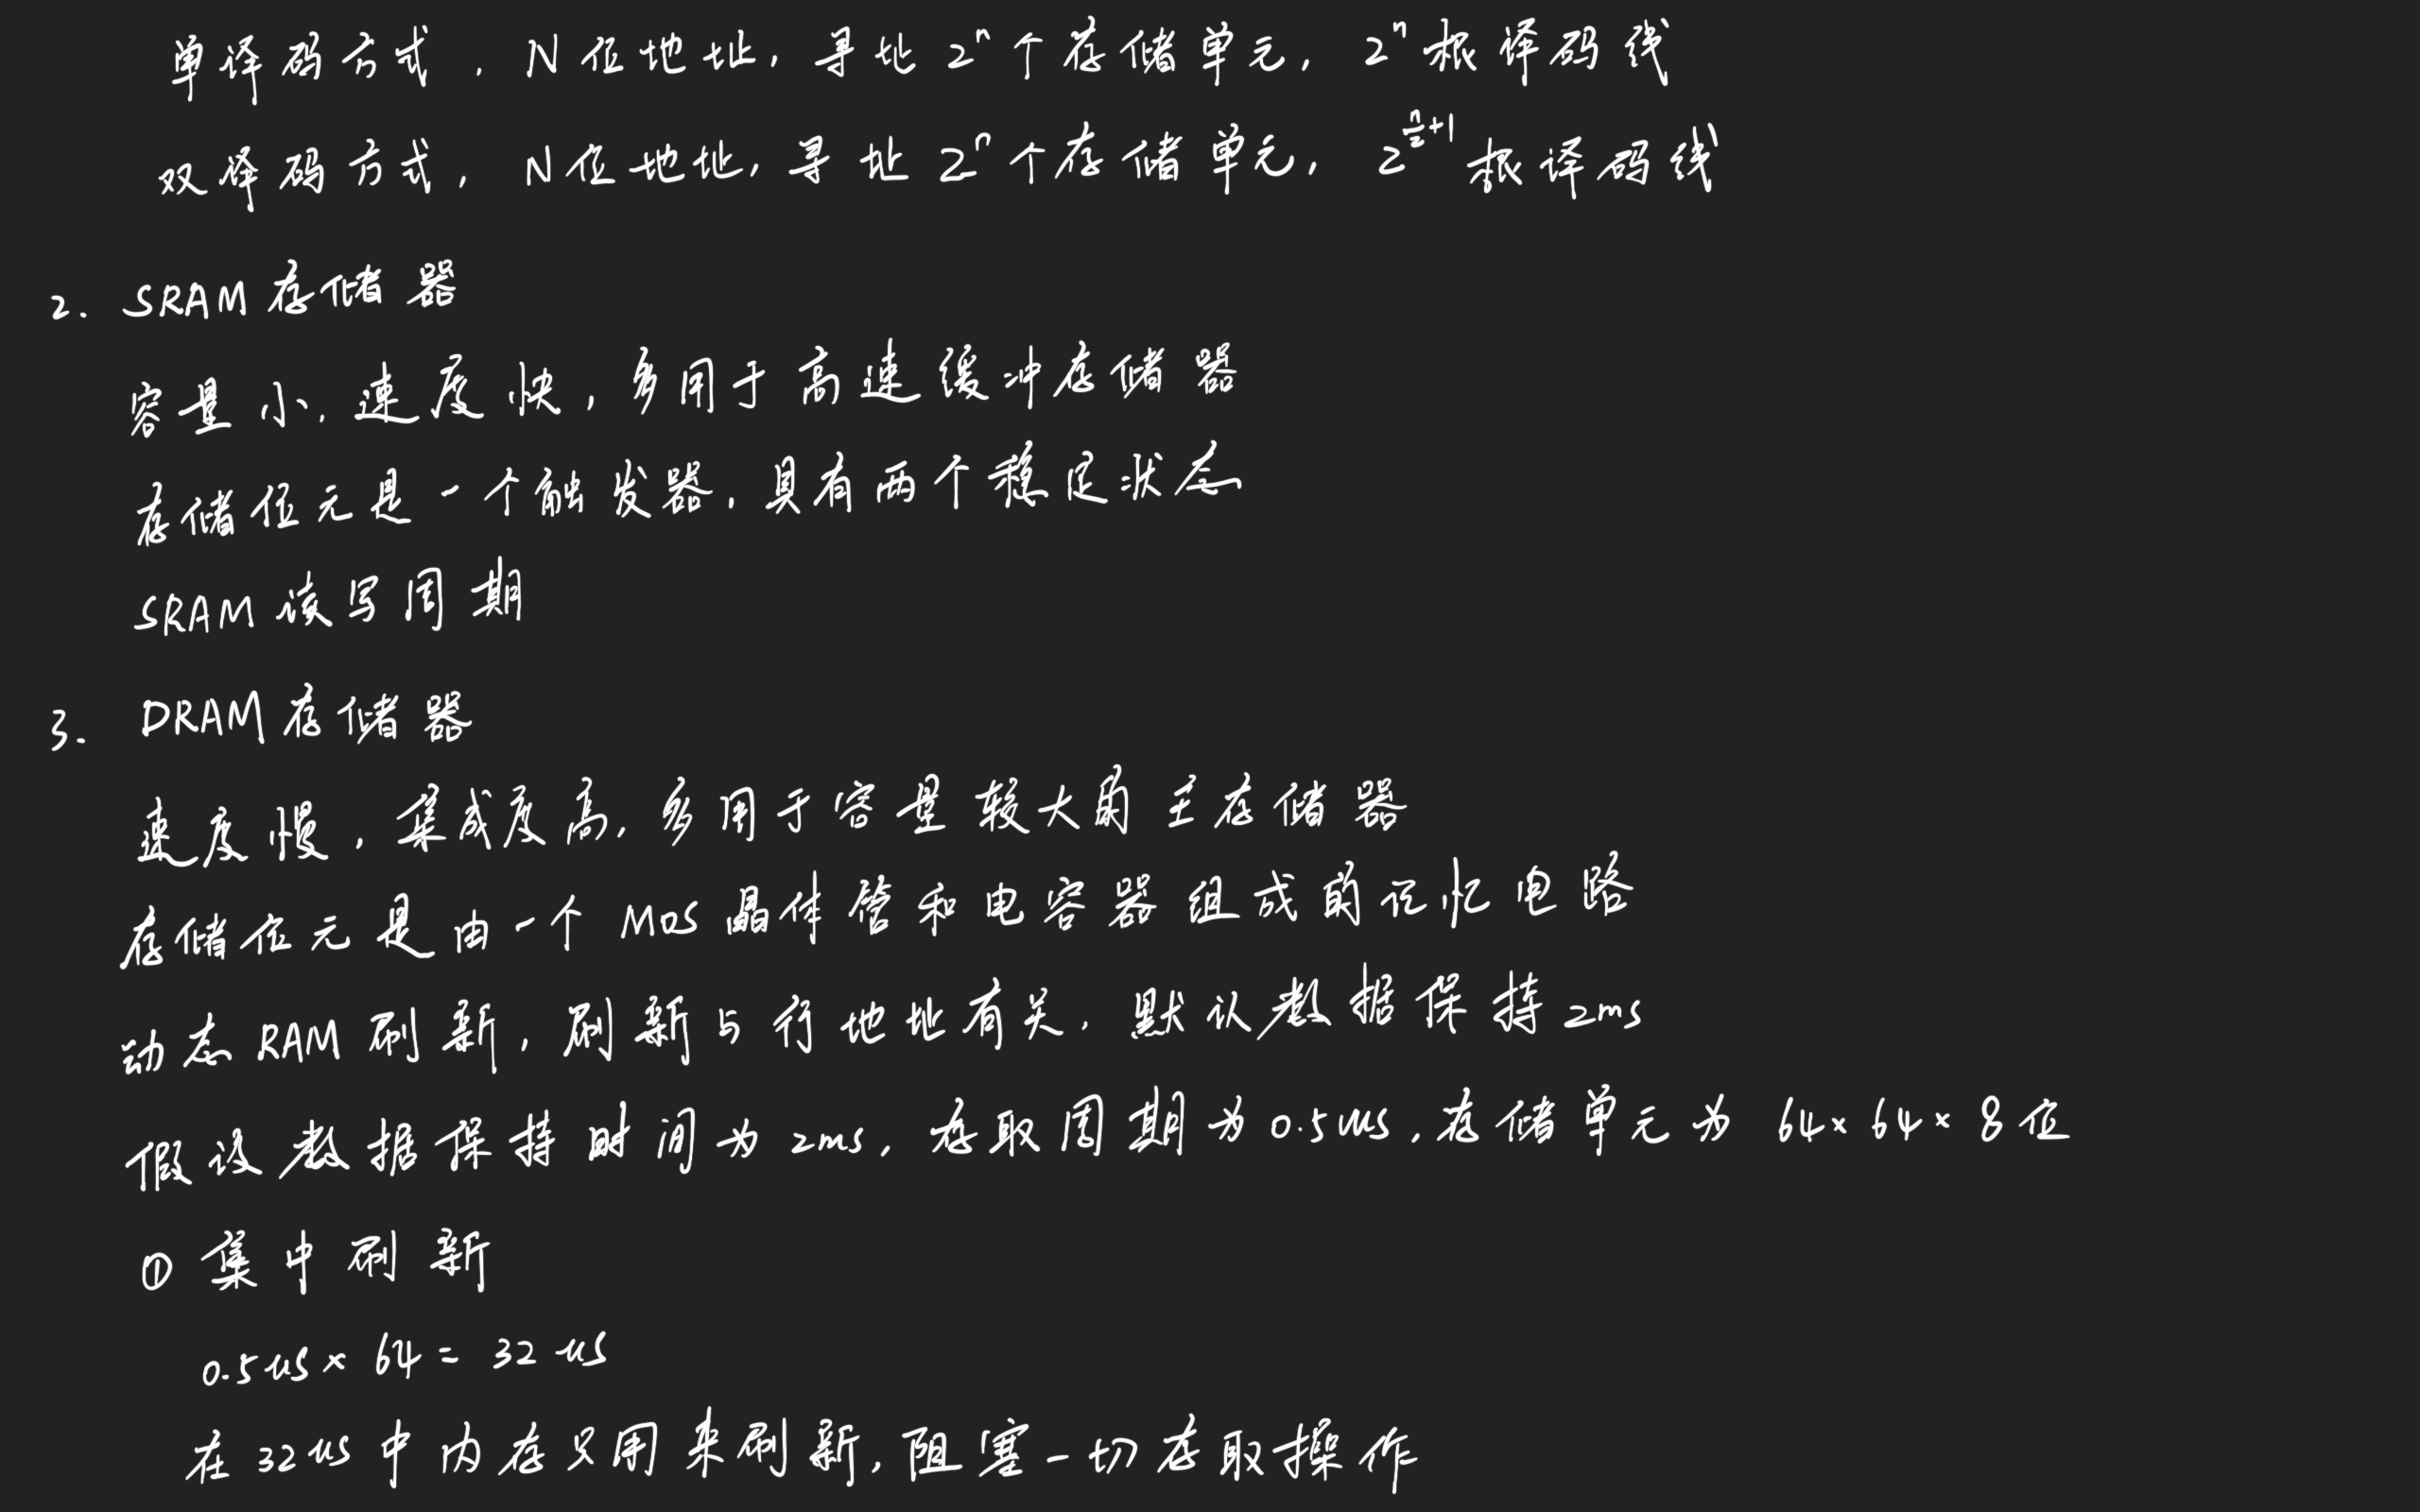 单译码方式，N位地址，寻址2ⁿ个存储单元，2ⁿ根译码线
双译码方式，N位地址，寻址2ⁿ个存储单元，2^(n/2+1)根译码线
2. SRAM存储器
容量小，速度快，多用于高速缓冲存储器
存储位元是一个触发器，具有两个稳定状态
SRAM读写周期
3. DRAM存储器
速度慢，集成度高，多用于容量较大的主存储器
存储位元是由一个MOS晶体管和电容器组成的记忆电路
动态RAM刷新，刷新与行地址有关，默认数据保持2ms
假设数据保持时间为2ms，存取周期为0.5us，存储单元为 64×64×8位
① 集中刷新
0.5us×64=32us
在32us中内存只用来刷新，阻塞一切存取操作